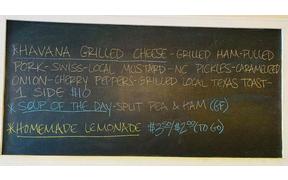 *HAVANA GRILLED CHEESE-GRILLED HAM-PULLED
PORK-SWISS-LOCAL MUSTARD-NC PICKLES-CARAMELIZED
ONION-CHERRY PEPPERS-GRILLED LOCAL TEXAS TOAST-
1 SIDE $10
*SOUP OF THE DAY-SPLIT PEA & HAM (GF)
*HOMEMADE LEMONADE $2.50/$2.00 (TO GO)